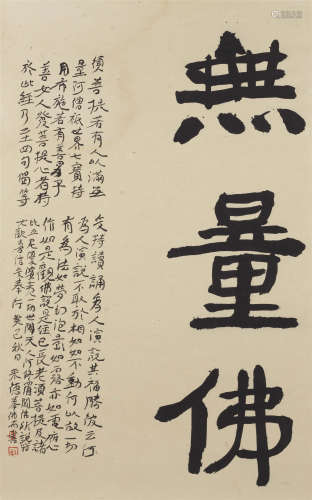 無量佛
須菩提若有人以滿無
量阿僧祇世界七寶持
用布施若有善男子
善女人發菩提心者持
於此經乃至四句偈等
受持讀誦為人演說其福勝彼云何
為人演說不取於相如如不動何以故一切
有為法如夢幻泡影如露亦如電應
作如是觀佛說是經已長老須菩提及諸
比丘尼優婆塞夷一切世間天人阿修羅聞佛所說皆
大歡喜信受奉行癸巳秋日